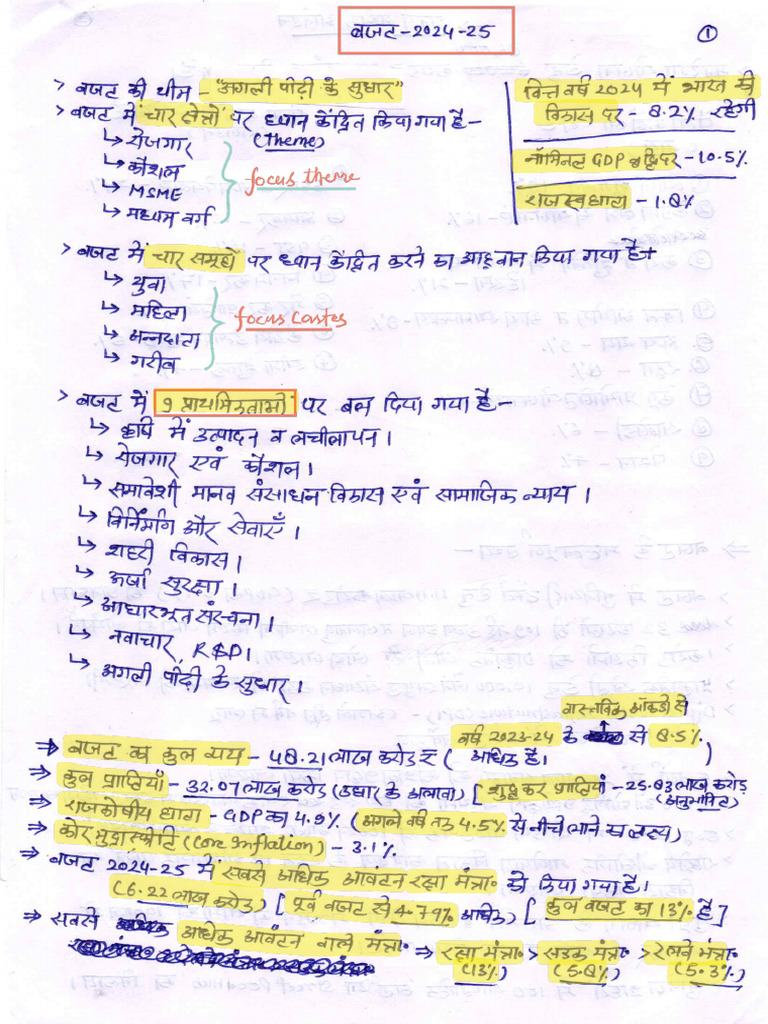 बजट-2024-25
①
> बजट की थीम - "अगली पीढ़ी के सुधार"
> बजट में चार क्षेत्रों पर ध्यान केंद्रित किया गया है-
(Theme)
↳ रोजगार
↳ कौशल
↳ MSME
↳ मध्यम वर्ग
focus theme
वित्त वर्ष 2024 में भारत की
विकास दर - 8.2% रहेगी
नॉमिनल GDP वृद्धि दर - 10.5%
राजस्व घाटा - 1.8%
> बजट में चार समूहों पर ध्यान केंद्रित करने का आह्वान किया गया है-
↳ युवा
↳ महिला
↳ अन्नदाता
↳ गरीब
focus castes
> बजट में 9 प्राथमिकताओं पर बल दिया गया है-
↳ कृषि में उत्पादन व लचीलापन।
↳ रोजगार एवं कौशल।
↳ समावेशी मानव संसाधन विकास एवं सामाजिक न्याय।
↳ विनिर्माण और सेवाएँ।
↳ शहरी विकास।
↳ ऊर्जा सुरक्षा।
↳ आधारभूत संरचना।
↳ नवाचार, R&D।
↳ अगली पीढ़ी के सुधार।
⇒ बजट का कुल व्यय - 48.21 लाख करोड़ ₹ ( वर्ष 2023-24 के वास्तविक आँकड़ो से से 8.5% अधिक है। )
⇒ कुल प्राप्तियाँ - 32.07 लाख करोड़ (उधार के अलावा) [ शुद्ध कर प्राप्तियां - 25.83 लाख करोड़ (अनुमानित)
⇒ राजकोषीय घाटा - GDP का 4.9% (अगले वर्ष तक 4.5% से नीचे लाने का लक्ष्य)
⇒ कोर मुद्रा स्फीति (Core Inflation) - 3.1%
⇒ बजट 2024-25 में सबसे अधिक आवंटन रक्षा मंत्रा॰ को किया गया है।
(6.22 लाख करोड़) [ पूर्व बजट से 4.79% अधिक) [ कुल बजट का 13% है ]
⇒ सबसे अधिक आवंटन वाले मंत्रा॰ ⇒ रक्षा मंत्रा॰ > सड़क मंत्रा॰ > रेलवे मंत्रा॰
(13%) (5.8%) (5.3%)